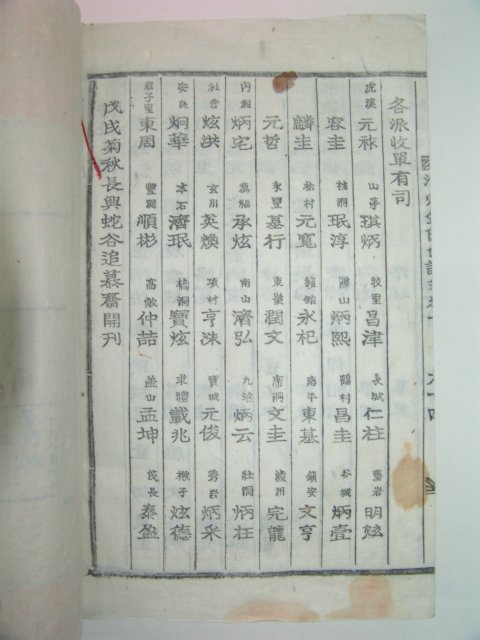 各派收單有司
虎溪 元祚 山亭 琪炳 牧里 昌津 長城 仁柱 靈岩 明炫
容圭 桂洞 珉淳 山 炳熙 鶴村 昌圭 谷城 炳壹
麟圭 松村 元寬 永杞 南平 東基 鎮安 文亨
元哲 永豐 基行 東嶺 潤文 洞 文圭 綾州 完龍
內洞 炳宅 嘉福 承炫 南山 濟弘 九 炳云 壯洞 炳柱
社倉 炫洪 玄川 英煥 村 亨洙 寶城 元俊 秀岩 炳采
安良 炯華 本石 濟珉 橘洞 寶炫 求禮 載兆 楸子 炫德
君子里 東周 豐洞 順彬 高敞 仲喆 益山 孟坤 茂長 泰盈
戊戌菊秋長興蛇谷追慕齋開刊